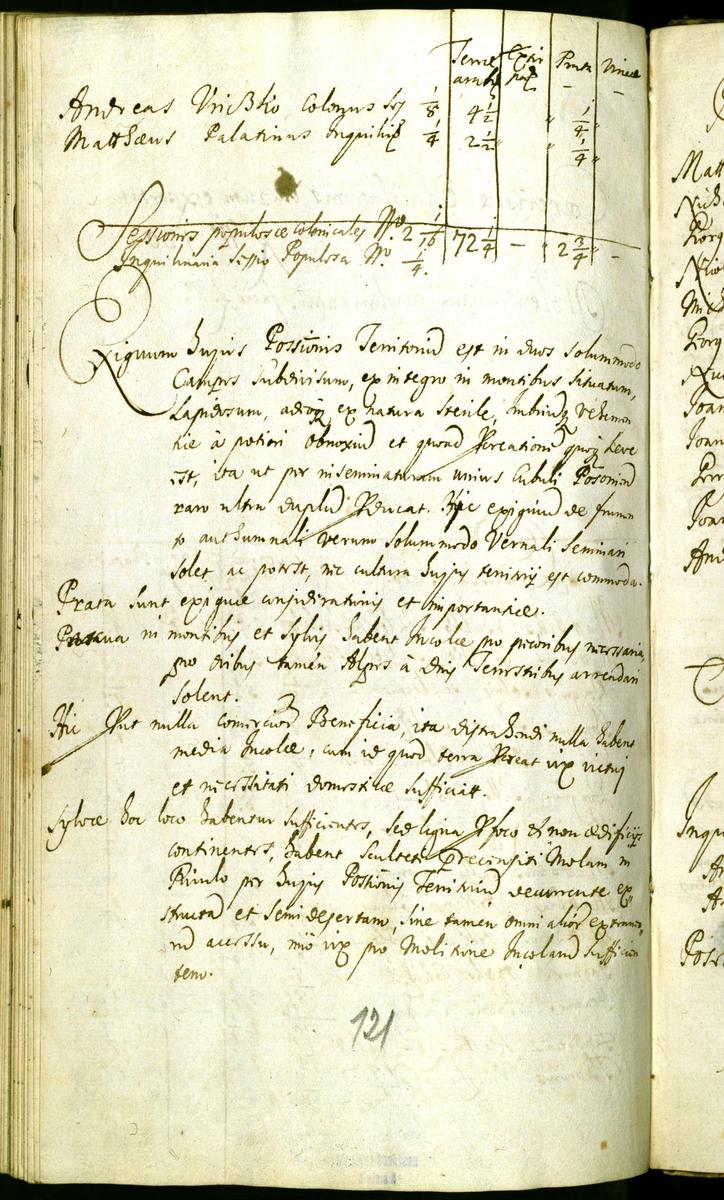 Terræ arabiles Extir pat Prata Vineæ
Andreas Vriczko Colonus Sess 1/8 4 1/2 " 1/4 "
Matthæus Palatinus Inquilin9 1/4 2 1/2 " " 1/4 "
Sessiones populosæ colonicales No 2 1/16 72 1/4 — " 2 3/4 " —
Inquilinaria Sessio Populosa No 1/4.
Exiguum hujus Possionis Territoriũ est in duos solummodo
Campos subdivisum, ex integro in montibus situatum,
Lapidosum, adeoq3 ex natura sterile, imbriũq3 vehemen
tiæ à potiori obnoxiũ et quoad Procreationẽ quoq3 leve
est, ita ut per inseminaturam unius Cubuli Posonien
raro ultra duplũ Producat. Hic exiguũ de frumen
to authumnali verum solummodo Vernali Seminari
solet ac potest, nec cultura hujus territorij est commoda.
Prata sunt exiguæ considerationis et importantiæ.
Pascua in montibus et sylvis habent Incolæ pro pecoribus necessaria,
pro ovibus tamen Alpes à Dnis Terrestribus arrendari
solent.
Hic Put nulla comerciorũ Beneficia, ita distrahendi nulla habent
media Incolæ, cum id quod terra Procreat vix victui
et necessitati domesticæ sufficiat.
Sylvæ hoc loco habentur sufficientes, sed ligna P foco et non ædificijs
continentes, habent Sculteti Præcensiti Molam in
Rivulo per hujus Possionis Territoriũ decurrente ex
structã et semidesertam, sine tamen omni aliorũ extraneo
rũ accessu, imò vix pro Molitione Incolarũ sufficien
tem.
121